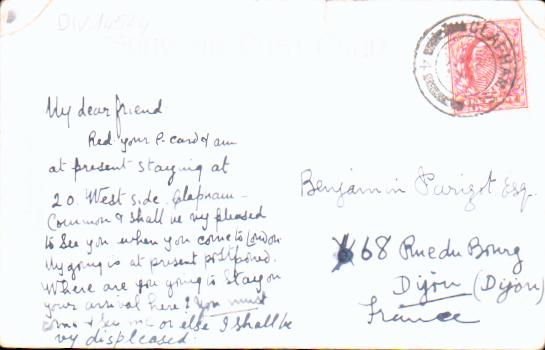 DIV 14524
CLAPHAM
My dear friend
Recd your P. card & am
at present staying at
20. West side. Clapham
Common & shall be vy pleased
to see you when you come to London
My going is at present postponed.
Where are you going to stay on
your arrival here? You must
come & see me or else I shall be
vy displeased.
Benjamin Parizot Esq.
68 Rue du Bourg
Dijon (Dijon)
France